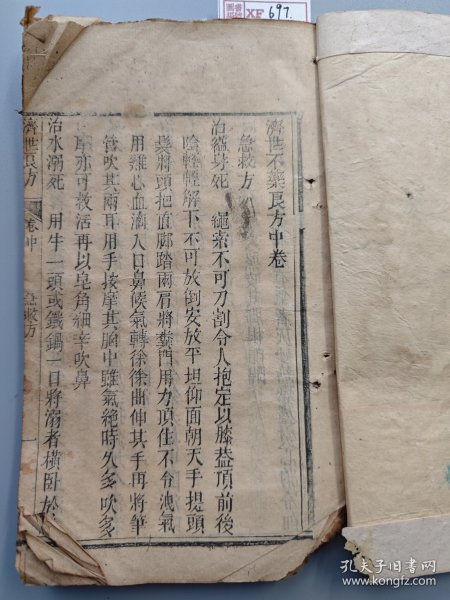 XF 697.
濟世不藥良方中卷
急救方
治縊死 繩索不可刀割令人抱定以膝盖頂前後
陰輕輕解下不可放倒安放平坦仰面朝天手提頭
髮將頭把直脚踏兩肩將糞門用力頂住不令洩氣
用雞心血滴入口鼻候氣轉徐徐曲伸其手再將筆
管吹其兩耳用手按摩其胸中雖氣絶時久多吹多
摩亦可救活再以皂角細辛吹鼻
治水溺死 用牛一頭或鐵鍋一口將溺者橫卧於
濟世良方 卷中 急救方 一
孔夫子旧书网
www.kongfz.com